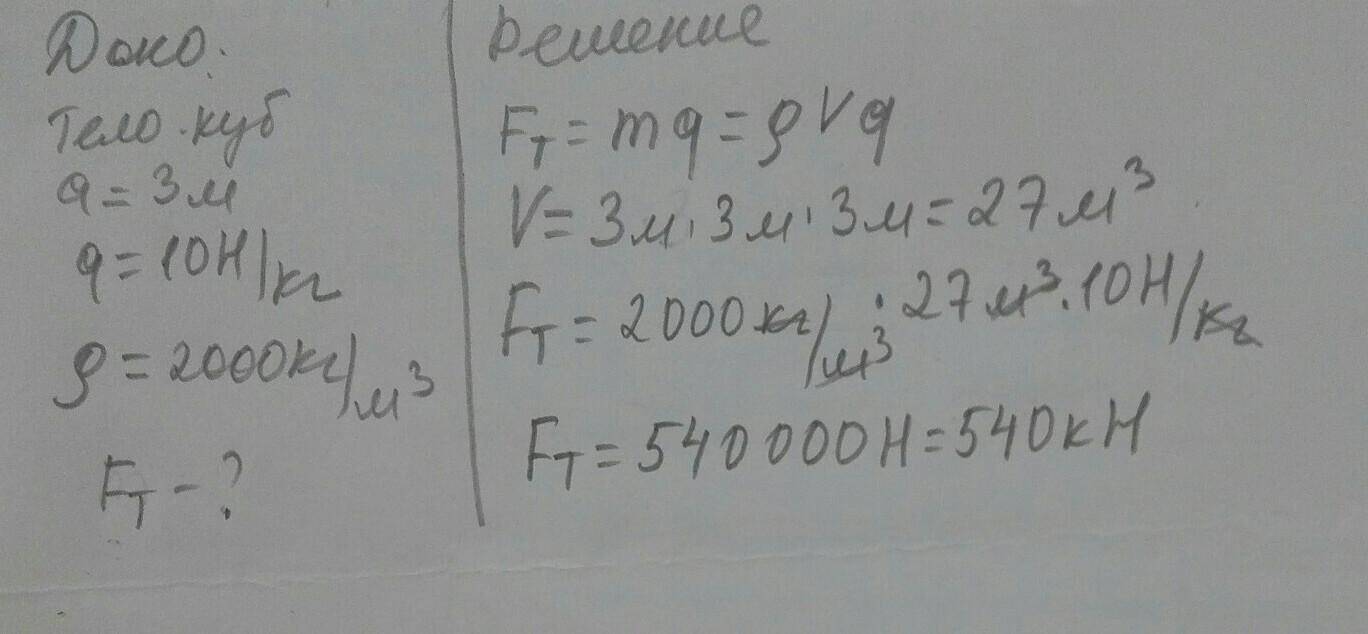 Дано:
Тело-куб
a = 3м
g = 10Н/кг
ρ = 2000кг/м³
Fт - ?
Решение
Fт = mg = ρVg
V = 3м · 3м · 3м = 27м³
Fт = 2000кг/м³ · 27м³ · 10Н/кг
Fт = 540000Н = 540кН